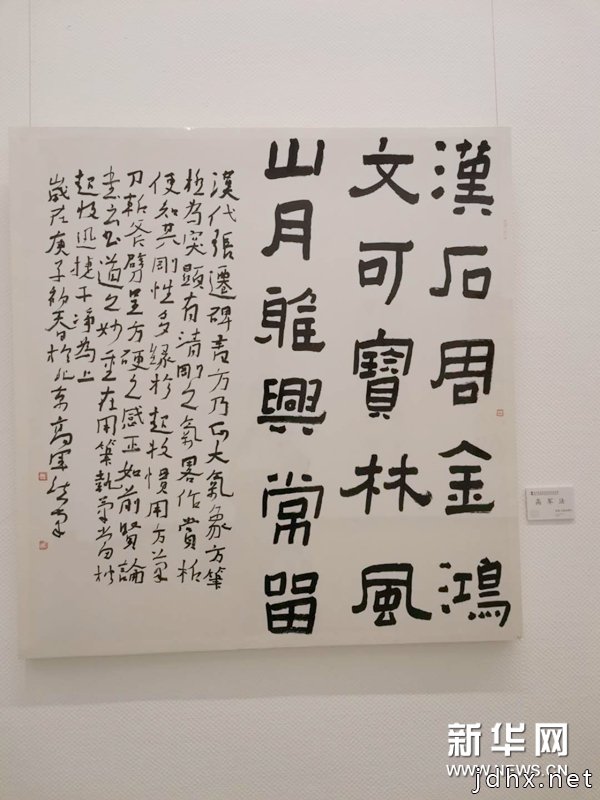 漢石周金鴻
文可寶林風
山月雅興常留
漢代張遷碑書方乃正大氣象方筆
極為突顯有清剛之氣畧作賞析
便知其剛性多緣於起收慣用方筆
刀斬斧劈呈方硬之感正如前賢論
書云書道之妙重在用筆執筆當
起收迅捷干净為上
歲在庚子初春於北京高軍法
高军法
新华网
WWW.NEWS.CN
jdhx.net